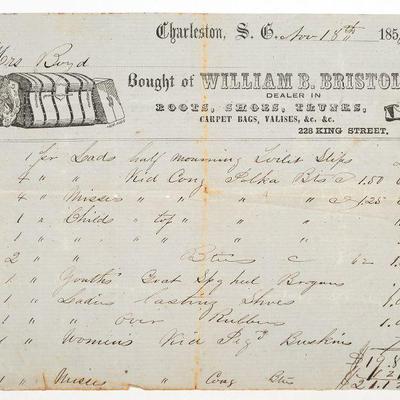 Charleston, S. C. Nov 18th 185
Mrs Boyd
Bought of WILLIAM B. BRISTOL
DEALER IN
BOOTS, SHOES, TRUNKS,
CARPET BAGS, VALISES, &c. &c.
228 KING STREET.
1 pr Lads half mourning Toilet Slips
4 " " Kid Cong Polka Bts @ 1.50
4 " Misses " " " @ 1.25
1 " Childs top " "
1 " " " " "
2 " " Bts c 62 1.
1 " Youth's Goat Spg heel Brogans 1.
1 " Ladies Lasting Shoes 1.
1 " " over Rubbers 1.
1 " Womens Kid Pegd Buskins
1 " Misses " Cong Bts